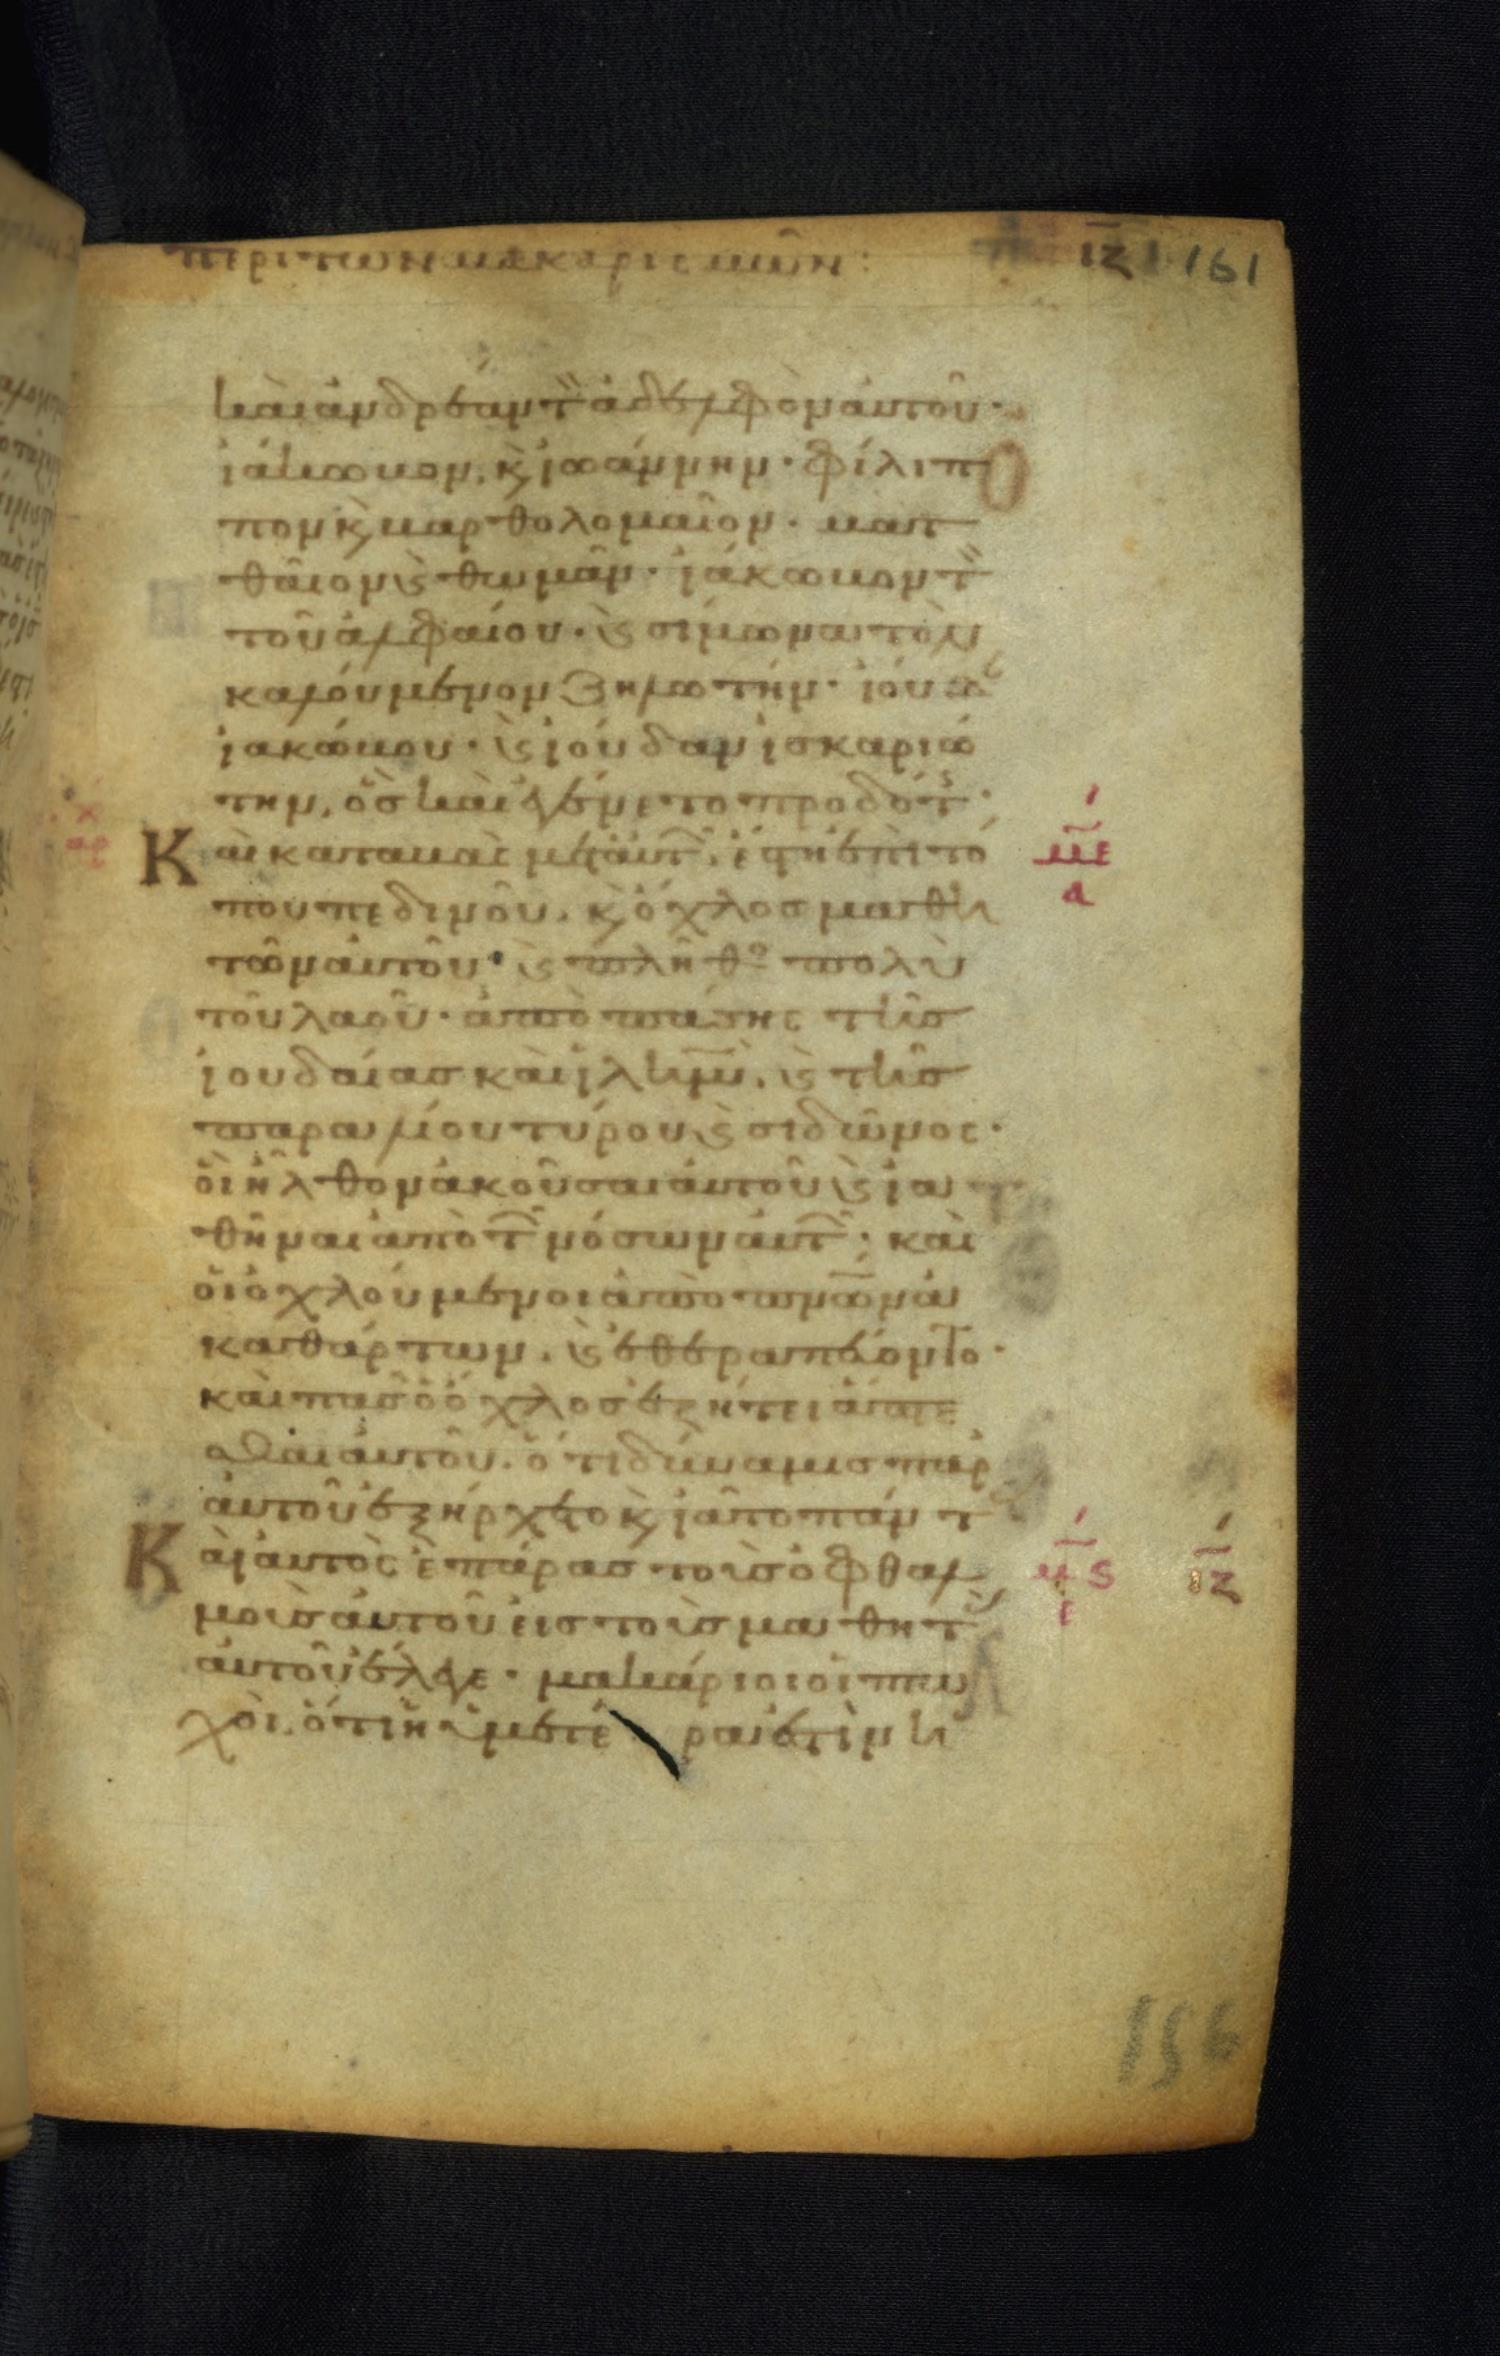 περὶ τῶν μακαρισμῶν: ιζ 161
καὶ ἀνδρέαν τὸν ἀδελφὸν αὐτοῦ·
ἰάκωβον, κ̀ ἰωάννην· φίλιπ
πον κ̀ βαρθολομαῖον· ματ
θαῖον κ̀ θωμᾶν· ἰάκωβον τὸν
τοῦ ἀλφαίου· κ̀ σίμωνα τὸν
καλούμενον ζηλωτήν· ἰούδα
ἰακώβου· κ̀ ἰούδαν ἰσκαριώ
την, ὃσ καὶ ἐγένετο προδότης·
Καὶ καταβὰς μετ' αὐτῶν, ἔστη ἐπὶ τό
που πεδινοῦ, κ̀ ὄχλοσ μαθη
τῶν αὐτοῦ· κ̀ πλῆθος πολὺ
τοῦ λαοῦ· ἀπὸ πάσης τῆσ
ἰουδαίασ καὶ ἰλημ̄, κ̀ τῆσ
παραλίου τύρου κ̀ σιδῶνος·
οἳ ἦλθον ἀκοῦσαι αὐτοῦ κ̀ ἰα
θῆναι ἀπὸ τῶν νόσων αὐτῶν· καὶ
οἱ ὀχλούμενοι ἀπὸ πνω̄ν ἀ
καθάρτων, κ̀ ἐθεραπεύοντο·
καὶ πᾶσ ὁ ὄχλοσ ἐζήτει ἅπτε
σθαι αὐτοῦ, ὅτι δύναμισ παρ
αὐτοῦ ἐξήρχετο κ̀ ἰᾶτο πάντας
Καὶ αὐτὸς ἐπάρασ τοὺσ ὀφθαλ
μοὺσ αὐτοῦ εἰσ τοὺσ μαθητὰς
αὐτοῦ ἔλεγε· μακάριοι οἱ πτω
χοὶ, ὅτι ἡμετέρα ἐστὶν ἡ
με
α
μς
ε
ιζ
156